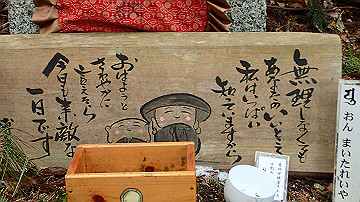 無理しなくても
あなたのいいとこ
私はいっぱい
知ていますから
おはようと
さわやかに
言えたら
今日も素敵な
一日です
おん まいたれいや